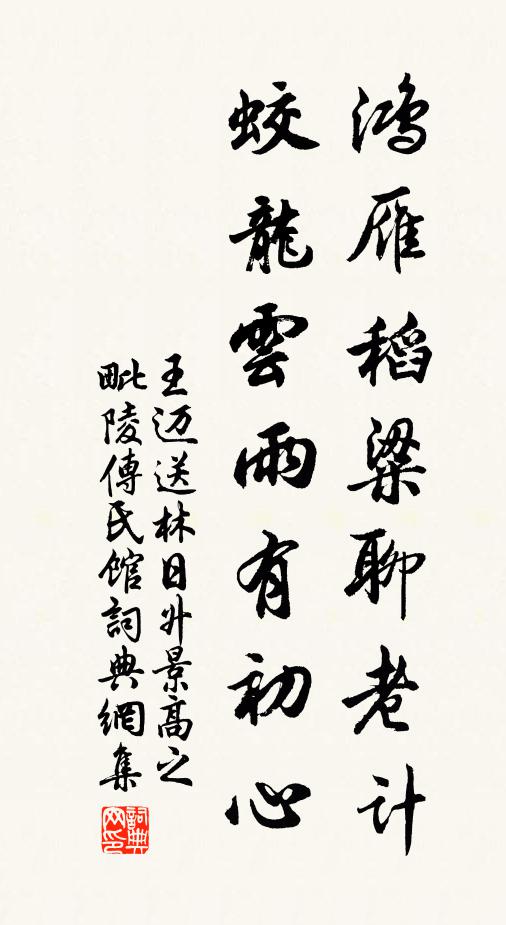 鴻雁稻粱聊老计
蛟龍雲雨有初心
王迈送林日升景高之
毗陵傳氏館詞典網集
詞典网印